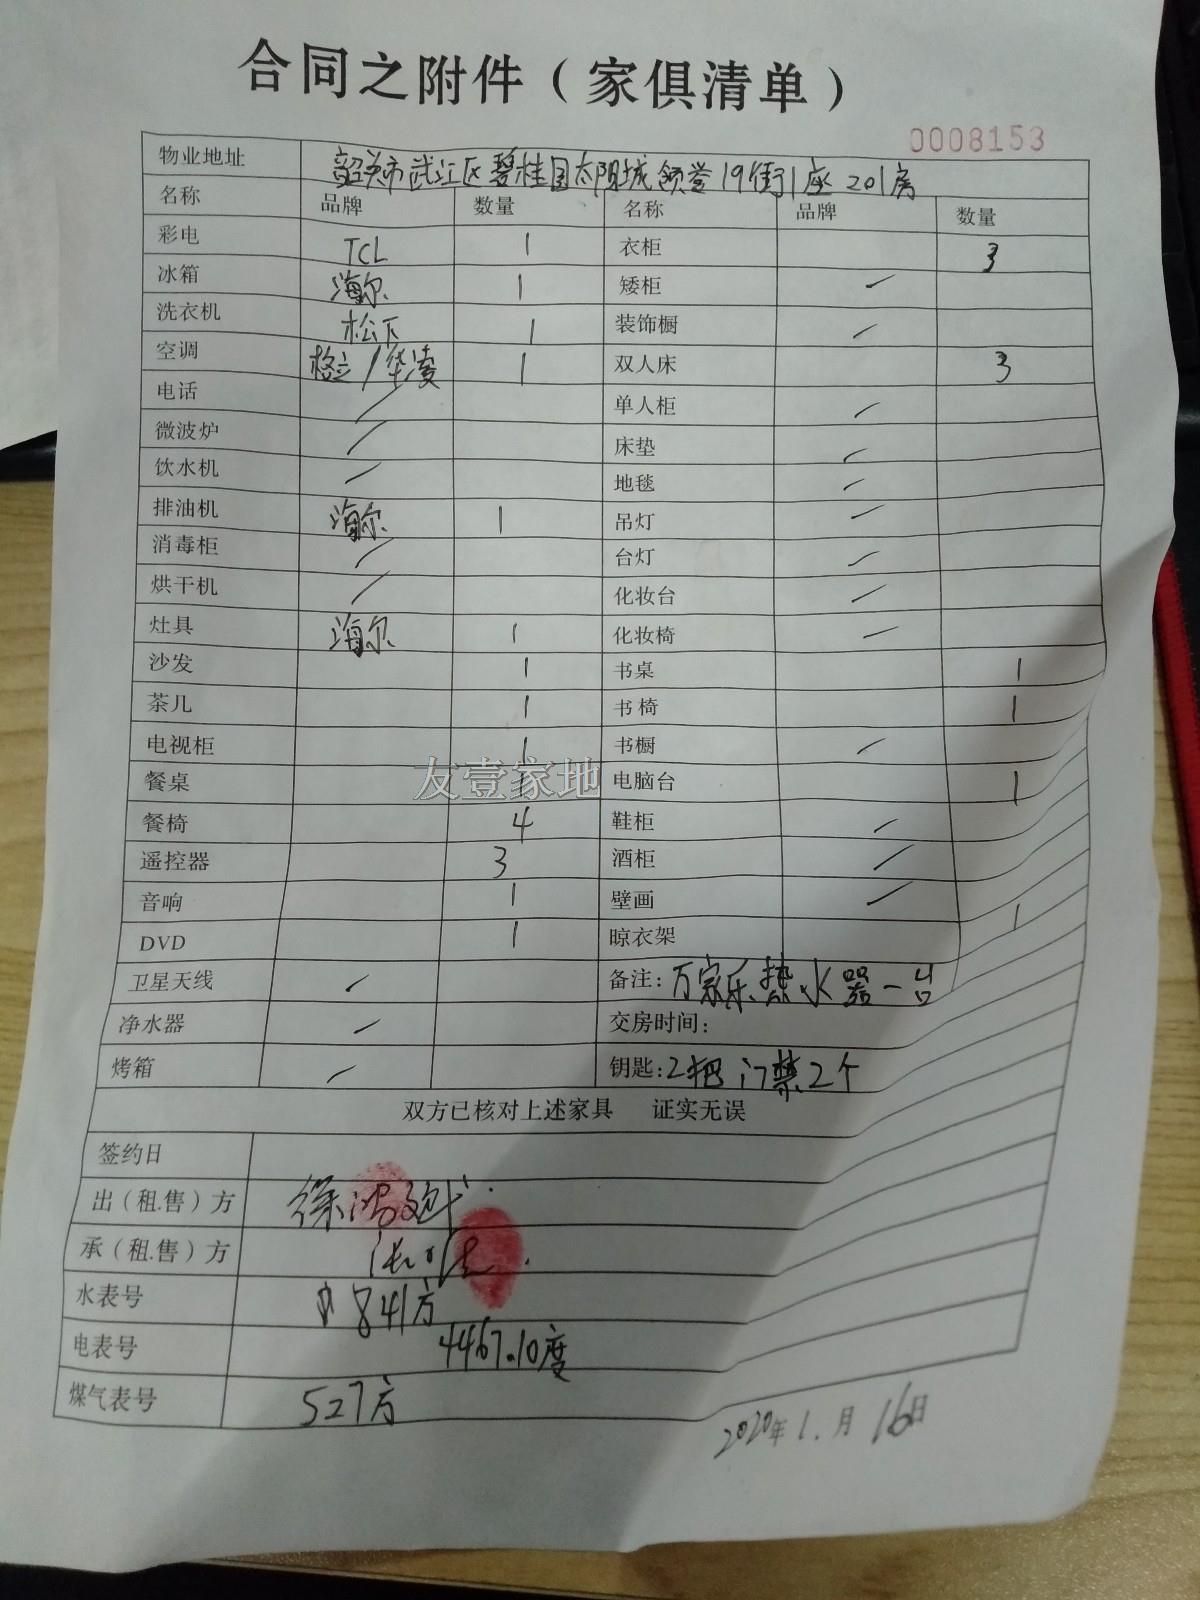 合同之附件（家俱清单）
0008153
物业地址 韶关市武江区碧桂园太阳城领誉19街1座201房
名称 品牌 数量 名称 品牌 数量
彩电 TCL 1 衣柜 3
冰箱 海尔 1 矮柜 /
洗衣机 松下 1 装饰橱 /
空调 格立/华凌 1 双人床 3
电话 / 单人柜 /
微波炉 / 床垫 /
饮水机 / 地毯 /
排油机 海尔 1 吊灯 /
消毒柜 / 台灯 /
烘干机 / 化妆台 /
灶具 海尔 1 化妆椅 /
沙发 1 书桌 1
茶几 1 书椅 1
电视柜 1 书橱 /
餐桌 1 电脑台 1
友壹家地
餐椅 4 鞋柜 /
遥控器 3 酒柜 /
音响 1 壁画 /
DVD 1 晾衣架 1
卫星天线 / 备注：万家乐热水器一台
净水器 / 交房时间：
烤箱 / 钥匙：2把 门禁2个
双方已核对上述家具 证实无误
签约日
出（租.售）方 徐
承（租.售）方
水表号 841方
电表号 4467.10度
煤气表号 527方
2020年1.月16日